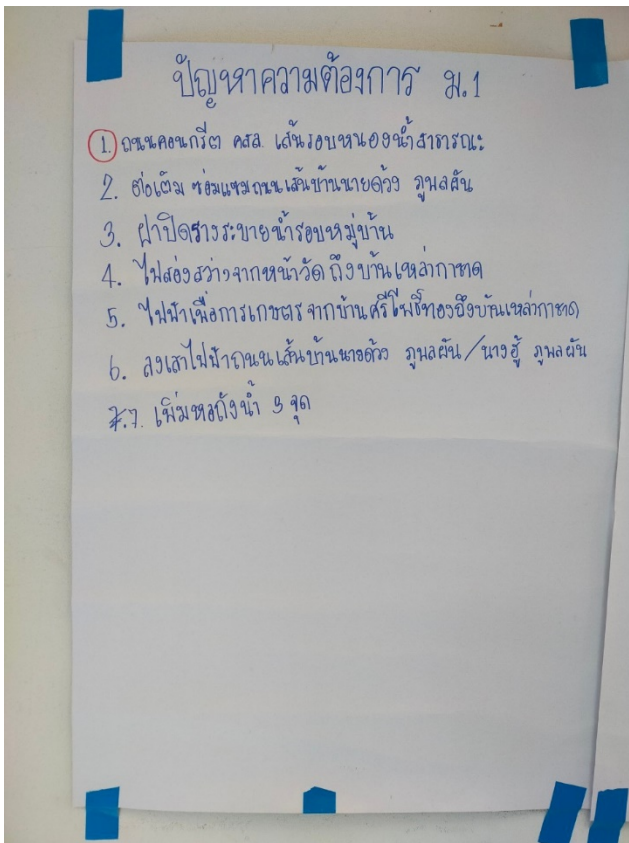 ปัญหาความต้องการ ม.1
1. ถนนคอนกรีต คสล. เส้นรอบหนองน้ำสาธารณะ
2. ต่อเติม ซ่อมแซมถนนเส้นบ้านนายด้วง ภูพลผัน
3. ฝาปิดรางระบายน้ำรอบหมู่บ้าน
4. ไฟส่องสว่างจากหน้าวัด ถึงบ้านเหล่ากาชาด
5. ไฟฟ้าเพื่อการเกษตร จากบ้านศรีโพธิ์ทองถึงบ้านเหล่ากาชาด
6. ลงเสาไฟฟ้าถนนเส้นบ้านนายด้วง ภูพลผัน/นางฮู้ ภูพลผัน
7. เพิ่มหอถังน้ำ 3 จุด